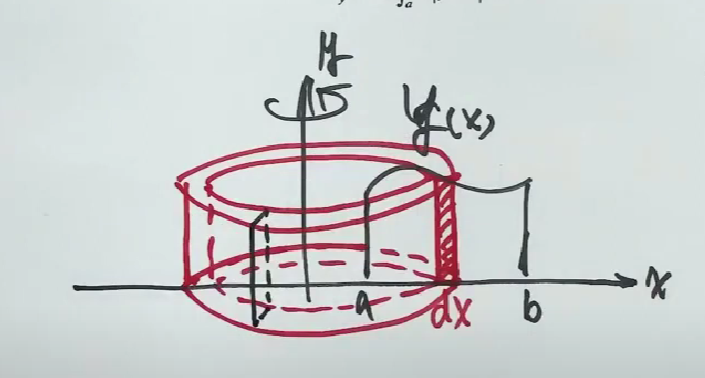 y
f(x)
a
dx
b
x